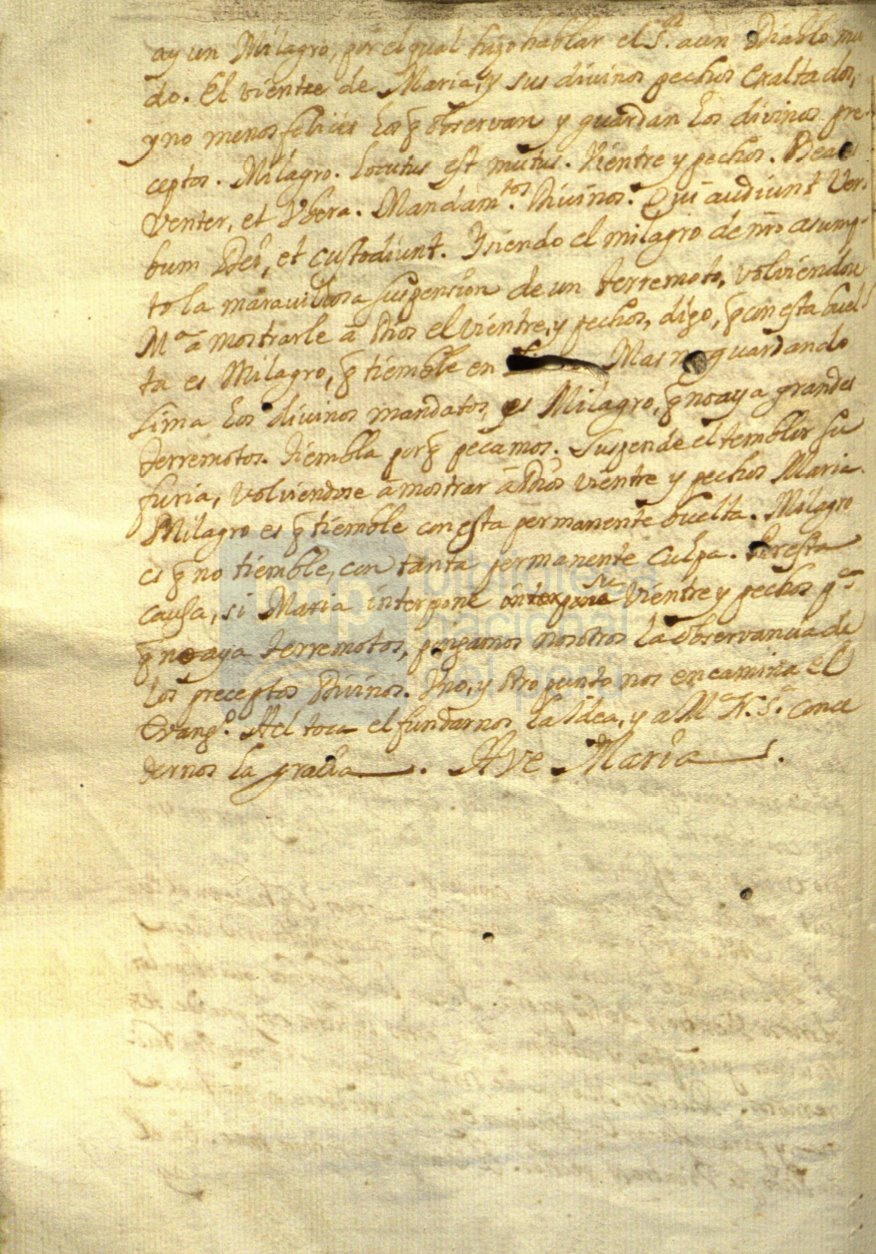 ay un Milagro, por el qual hizo hablar el S.r a un Diablo mu
do. El vientre de Maria, y sus divinos pechos exaltados,
y no menos felices los q̃ observan y guardan los divinos pre-
ceptos. Milagro. Locutus est mutus. Vientre y pechos. Beatus
Venter, et Vbera. Mandam.tos Divinos. Qui audiunt Ver-
bum Dei, et custodiunt. Y siendo el milagro de nr̃o asump-
to la maravillosa suspension de un terremoto, volviendose
M.a à mostrarle à Dios el vientre, y pechos, digo, q̃ con esta buel
ta es Milagro, q̃ tiemble en Mas no guardando
Lima los divinos mandatos, es Milagro, q̃ no aya grandes
terremotos. Tiembla porq̃ pecamos. Suspende el temblor su
furia, volviendose à mostrar à Dios vientre y pechos Maria.
Milagro es q̃ tiemble con esta permanente buelta. Milagro
es q̃ no tiemble, con tanta permanente culpa. Por esta
causa, si Maria interpone su vientre y pechos p.a
q̃ no aya terremotos, pongamos nosotros la observancia de
los preceptos Divinos. Vno, y otro punto nos encamina el
Evang.o. A el toca el fundarnos la Idea, y a M. N. S.a conce
dernos la gracia. Ave Maria.
biblioteca
nacional
del perú